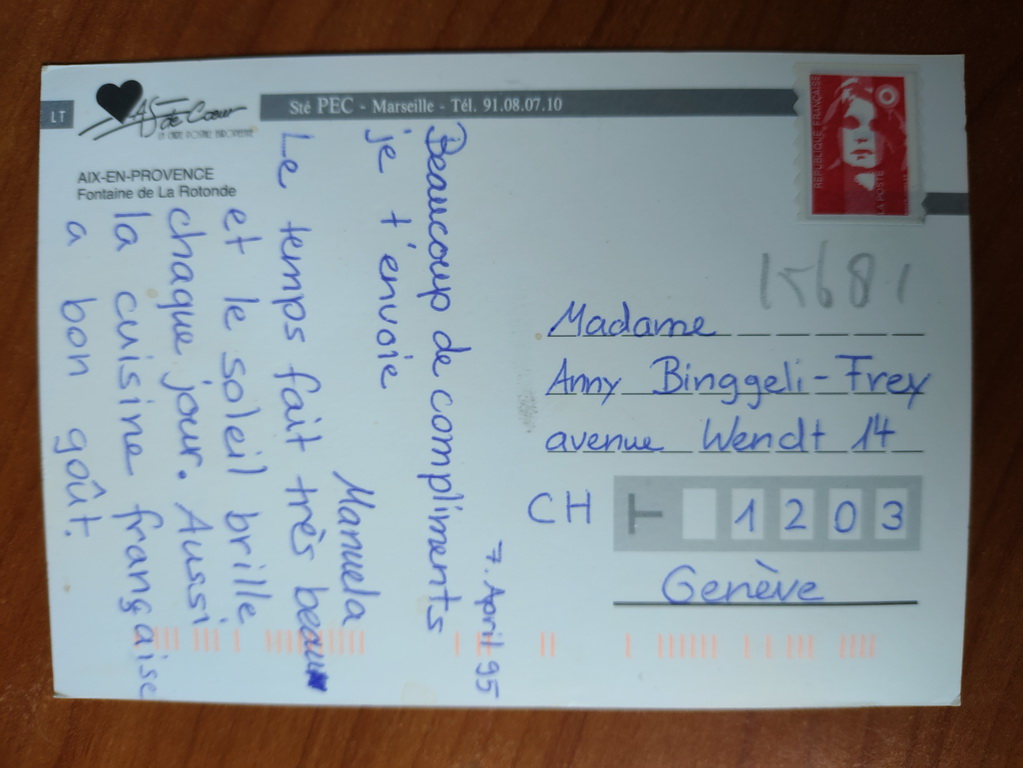 LT
AS de Cœur
LA CARTE POSTALE EUROPEENNE
Sté PEC - Marseille - Tél. 91.08.07.10
AIX-EN-PROVENCE
Fontaine de La Rotonde
7. April 95
Beaucoup de compliments
je t'envoie
Manuela
Le temps fait très beau
et le soleil brille
chaque jour. Aussi
la cuisine française
a bon goût.
REPUBLIQUE FRANÇAISE
LA POSTE
15681
Madame
Anny Binggeli-Frey
avenue Wendt 14
CH 1203
Genève